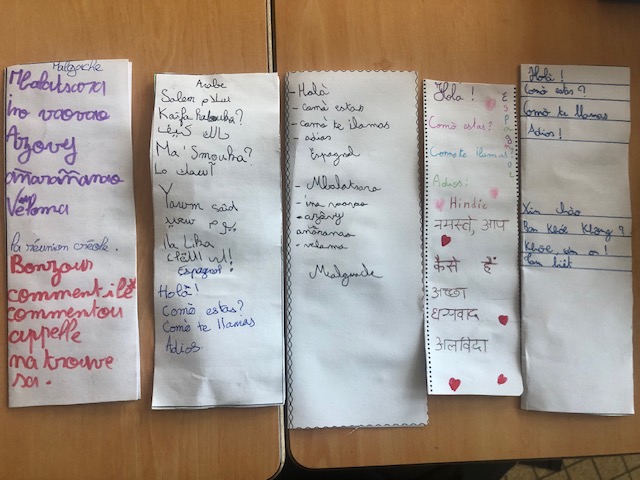 Malgache
Mbalatsara
ino vaovao
Azovy
añarañanao
Véloma
la réunion créole.
Bonzour
comment ilé
commentou
appelle
na trouve
sa.
Arabe
Salem سلام
Kaïfa Halouka?
حالك كيف
Ma' Smouka?
ما آسمك
Yawm saïd
يوم سعيد
ila Lika
Espagnol!
Holà!
Comò estas?
Comò te llamas
Adios.
-Holà
-comò estas
-comò te llamas
-adios
Espagnol
- Mbalatsara
-ino vaovao
-azövy
añaranao
-veloma
Malgache
Hola !
Espagnol
Comò estas?
Como te llamas?
Adios!
Hindie
नमस्ते, आप
कैसे हैं
अच्छा
धन्यवाद
अलविदा
Holà !
Comò estas ?
Comò te llamas
Adios !
Xin chào
Ban khoé không ?
Tam biêt